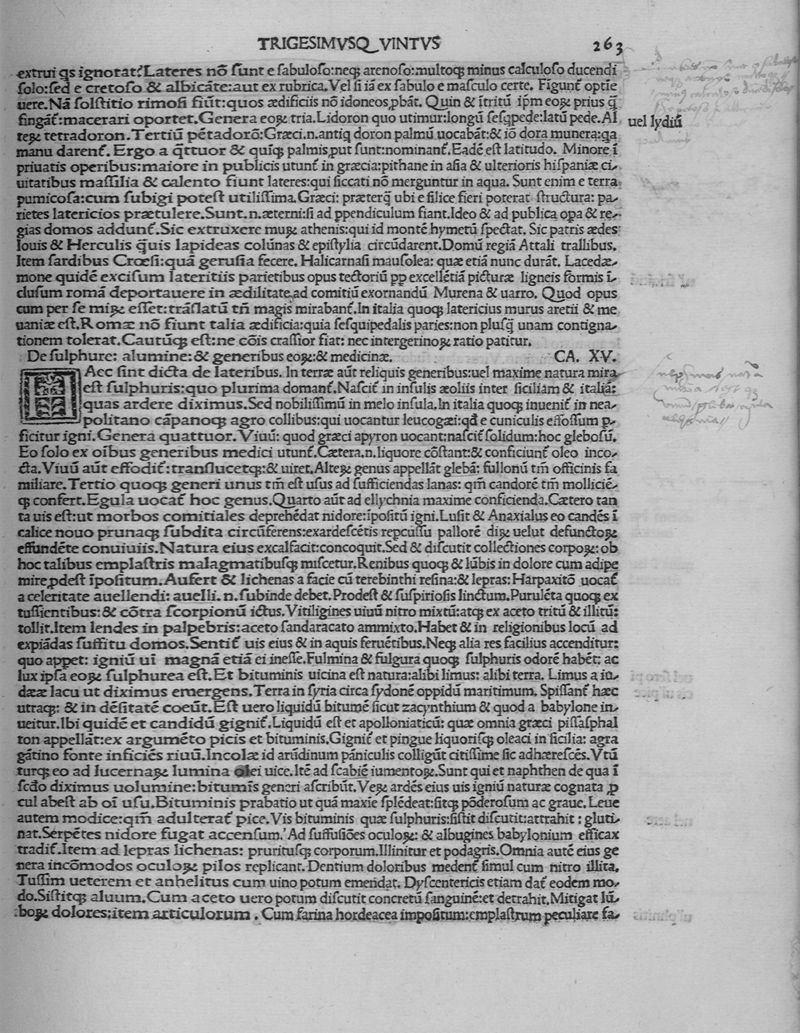 TRIGESIMVSQVINTVS 263
extrui qs ignorat? Lateres nō sunt e sabuloso: neqꝫ arenoso: multoqꝫ minus calculoso ducendi
solo: sed e cretoso & albicāte: aut ex rubrica. Vel si iā ex sabulo e masculo certe. Fiūgunt optie
uere. Nā solstitio rimosi fiūt: quos ædificiis nō idoneos ꝓbāt. Quin & ītritū ip̄m eoꝝ prius q̄
fingāt: macerari oportet. Genera eoꝝ tria. Lidoron quo utimur: longū sesqpede: latū pede. Al
uel lydiū
teꝝ tetradoron. Tertiū pētadorō: Græci. n. antiq doron palmū uocabāt: & iō dora munera: qa
manu darent. Ergo a q̄ttuor & quīqꝫ palmis ꝓut sunt: nominant. Eadē est latitudo. Minore ī
priuatis operibus: maiore in publicis utunt in græcia: pithane in asia & ulterioris hispaniæ ci-
uitatibus massilia & calento fiunt lateres: qui siccati nō merguntur in aqua. Sunt enim e terra
pumicosa: cum subigi potest utilissima. Græci: præterq̄ ubi e silice fieri poterat structura: pa-
rietes latericios prætulere. Sunt. n. æterni: si ad ppendiculum fiant. Ideo & ad publica opa & re-
gias domos addunt. Sic extruxere muꝝ athenis: qui id montē hymetū spectat. Sic patris ædes
Iouis & Herculis q̄uis lapideas colūnas & epistylia circūdarent. Domū regiā Attali trallibus.
Item sardibus Crœsi: quā gerusia fecere. Halicarnasi mausolea: quæ etiā nunc durāt. Lacedæ-
mone quidē excisum lateritiis parietibus opus tectoriū pp excellētiā picturæ ligneis formis ī-
clusum romā deportauere in ædilitate, ad comitiū exornandū Murena & uarro. Quod opus
cum per se miꝝ esset: trāslatū tn̄ magis mirabant. In italia quoqꝫ latericius murus aretii & me
uaniæ est. Romæ nō fiunt talia ædificia: quia sesquipedalis paries: non plusq̄ unam contigna-
tionem tolerat. Cautūqꝫ est: ne cōis crassior fiat: nec intergerinoꝝ ratio patitur.
De sulphure: alumine: & generibus eoꝝ: & medicinæ. CA. XV.
Aec sint dicta de lateribus. In terræ aūt reliquis generibus: uel maxime natura mira
est sulphuris: quo plurima domant. Nascit in insulis æoliis inter siciliam & italiā:
quas ardere diximus. Sed nobilissimū in melo insula. In italia quoqꝫ inuenit in nea-
politano cāpanoqꝫ agro collibus: qui uocantur leucogæi: qd e cuniculis effossum p-
ficitur igni. Genera quattuor. Viuū: quod græci apyron uocant: nascit solidum: hoc glebosū.
Eo solo ex oībus generibus medici utunt. Cætera. n. liquore cōstant: & conficiunt oleo inco-
cta. Viuū aūt effodit: translucetqꝫ: & uiret. Alteꝝ genus appellāt glebā: fullonū tm̄ officinis fa
miliare. Tertio quoqꝫ generi unus tm̄ est usus ad sufficiendas lanas: qm̄ candorē tm̄ molliciē-
qꝫ confert. Egula uocat hoc genus. Quarto aūt ad ellychnia maxime conficienda. Cætero tan
ta uis est: ut morbos comitiales deprehēdat nidore: īpositū igni. Lusit & Anaxialus eo candēs ī
calice nouo prunaqꝫ subdita circūferens: exardescētis repcussu pallorē diꝝ uelut defunctoꝝ
effundēte conuiuiis. Natura eius excalfacit: concoquit. Sed & discutit collectiones corpoꝝ: ob
hoc talibus emplastris malagmatibusqꝫ miscetur. Renibus quoqꝫ & lūbis in dolore cum adipe
mire ꝓdest īpositum. Aufert & lichenas a facie cū terebinthi resina: & lepras: Harpaxitō uocat
a celeritate auellendi: auelli. n. subinde debet. Prodest & suspiriosis linctum. Purulēta quoqꝫ ex
tussientibus: & cōtra scorpionū ictus. Vitiligines uiuū nitro mixtū: atqꝫ ex aceto tritū & illitū:
tollit. Item lendes in palpebris: aceto sandaracato ammixto. Habet & in religionibus locū ad
expiādas suffitu domos. Sentit uis eius & in aquis feruētibus. Neqꝫ alia res facilius accenditur:
quo appet: igniū ui magnā etiā ei inesse. Fulmina & fulgura quoqꝫ sulphuris odorē habēt: ac
lux ipsa eoꝝ sulphurea est. Et bituminis uicina est natura: alibi limus: alibi terra. Limus a iu-
dææ lacu ut diximus emergens. Terra in syria circa sydonē oppidū maritimum. Spissant hæc
utraqꝫ: & in dēsitatē coeūt. Est uero liquidū bitumē sicut zacynthium & quod a babylone in-
ueitur. Ibi quidē et candidū gignit. Liquidū est et apolloniaticū: quæ omnia græci pissasphal
ton appellāt: ex argumēto picis et bituminis. Gignit et pingue liquorisqꝫ oleaci in sicilia: agra
gātino fonte inficiēs riuū. Incolæ id arūdinum pāniculis colligūt citissime sic adhærescēs. Vtū
turqꝫ eo ad lucernaꝝ lumina olei uice. Itē ad scabiē iumentoꝝ. Sunt qui et naphthen de qua ī
scdo diximus uolumine: bituminis generi ascribūt. Veꝝ ardēs eius uis igniū naturæ cognata ꝓ
cul abest ab oī usu. Bituminis probatio ut quā maxīe splēdeat: sitqꝫ pōderosum ac graue. Leue
autem modice: qm̄ adulterat pice. Vis bituminis quæ sulphuris: sistit discutit: attrahit: gluti-
nat. Serpētes nidore fugat accensum. Ad suffusiōes oculoꝝ: & albugines babylonium efficax
tradit. Item ad lepras lichenas: pruritusqꝫ corporum. Illinitur et podagris. Omnia autē eius ge
nera incōmodos oculoꝝ pilos replicant. Dentium doloribus medent simul cum nitro illita.
Tussim ueterem et anhelitus cum uino potum emendat. Dyscentericis etiam dat eodem mo-
do. Sistitqꝫ aluum. Cum aceto uero potum discutit concretū sanguinē: et detrahit. Mitigat lū-
boꝝ dolores: item articulorum. Cum farina hordeacea impositum: emplastrum peculiare fa-